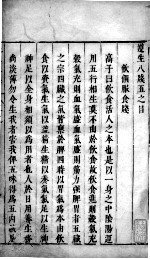 遵生八牋五之目
飲饌服食牋
高子曰飲食活人之本也是以一身之中陰陽運
用五行相生莫不由於飲食故飲食進則穀氣充
穀氣充則血氣盛血氣盛則筋力強脾胃者五臟
之宗四臟之氣皆稟於脾四時以胃氣為本由飲
食以資氣生氣以益精生精以養氣氣足以生神
神足以全身相須以為用者也人於日用養生務
尚淡薄勿令生我者害我俾五味得為五內賊是